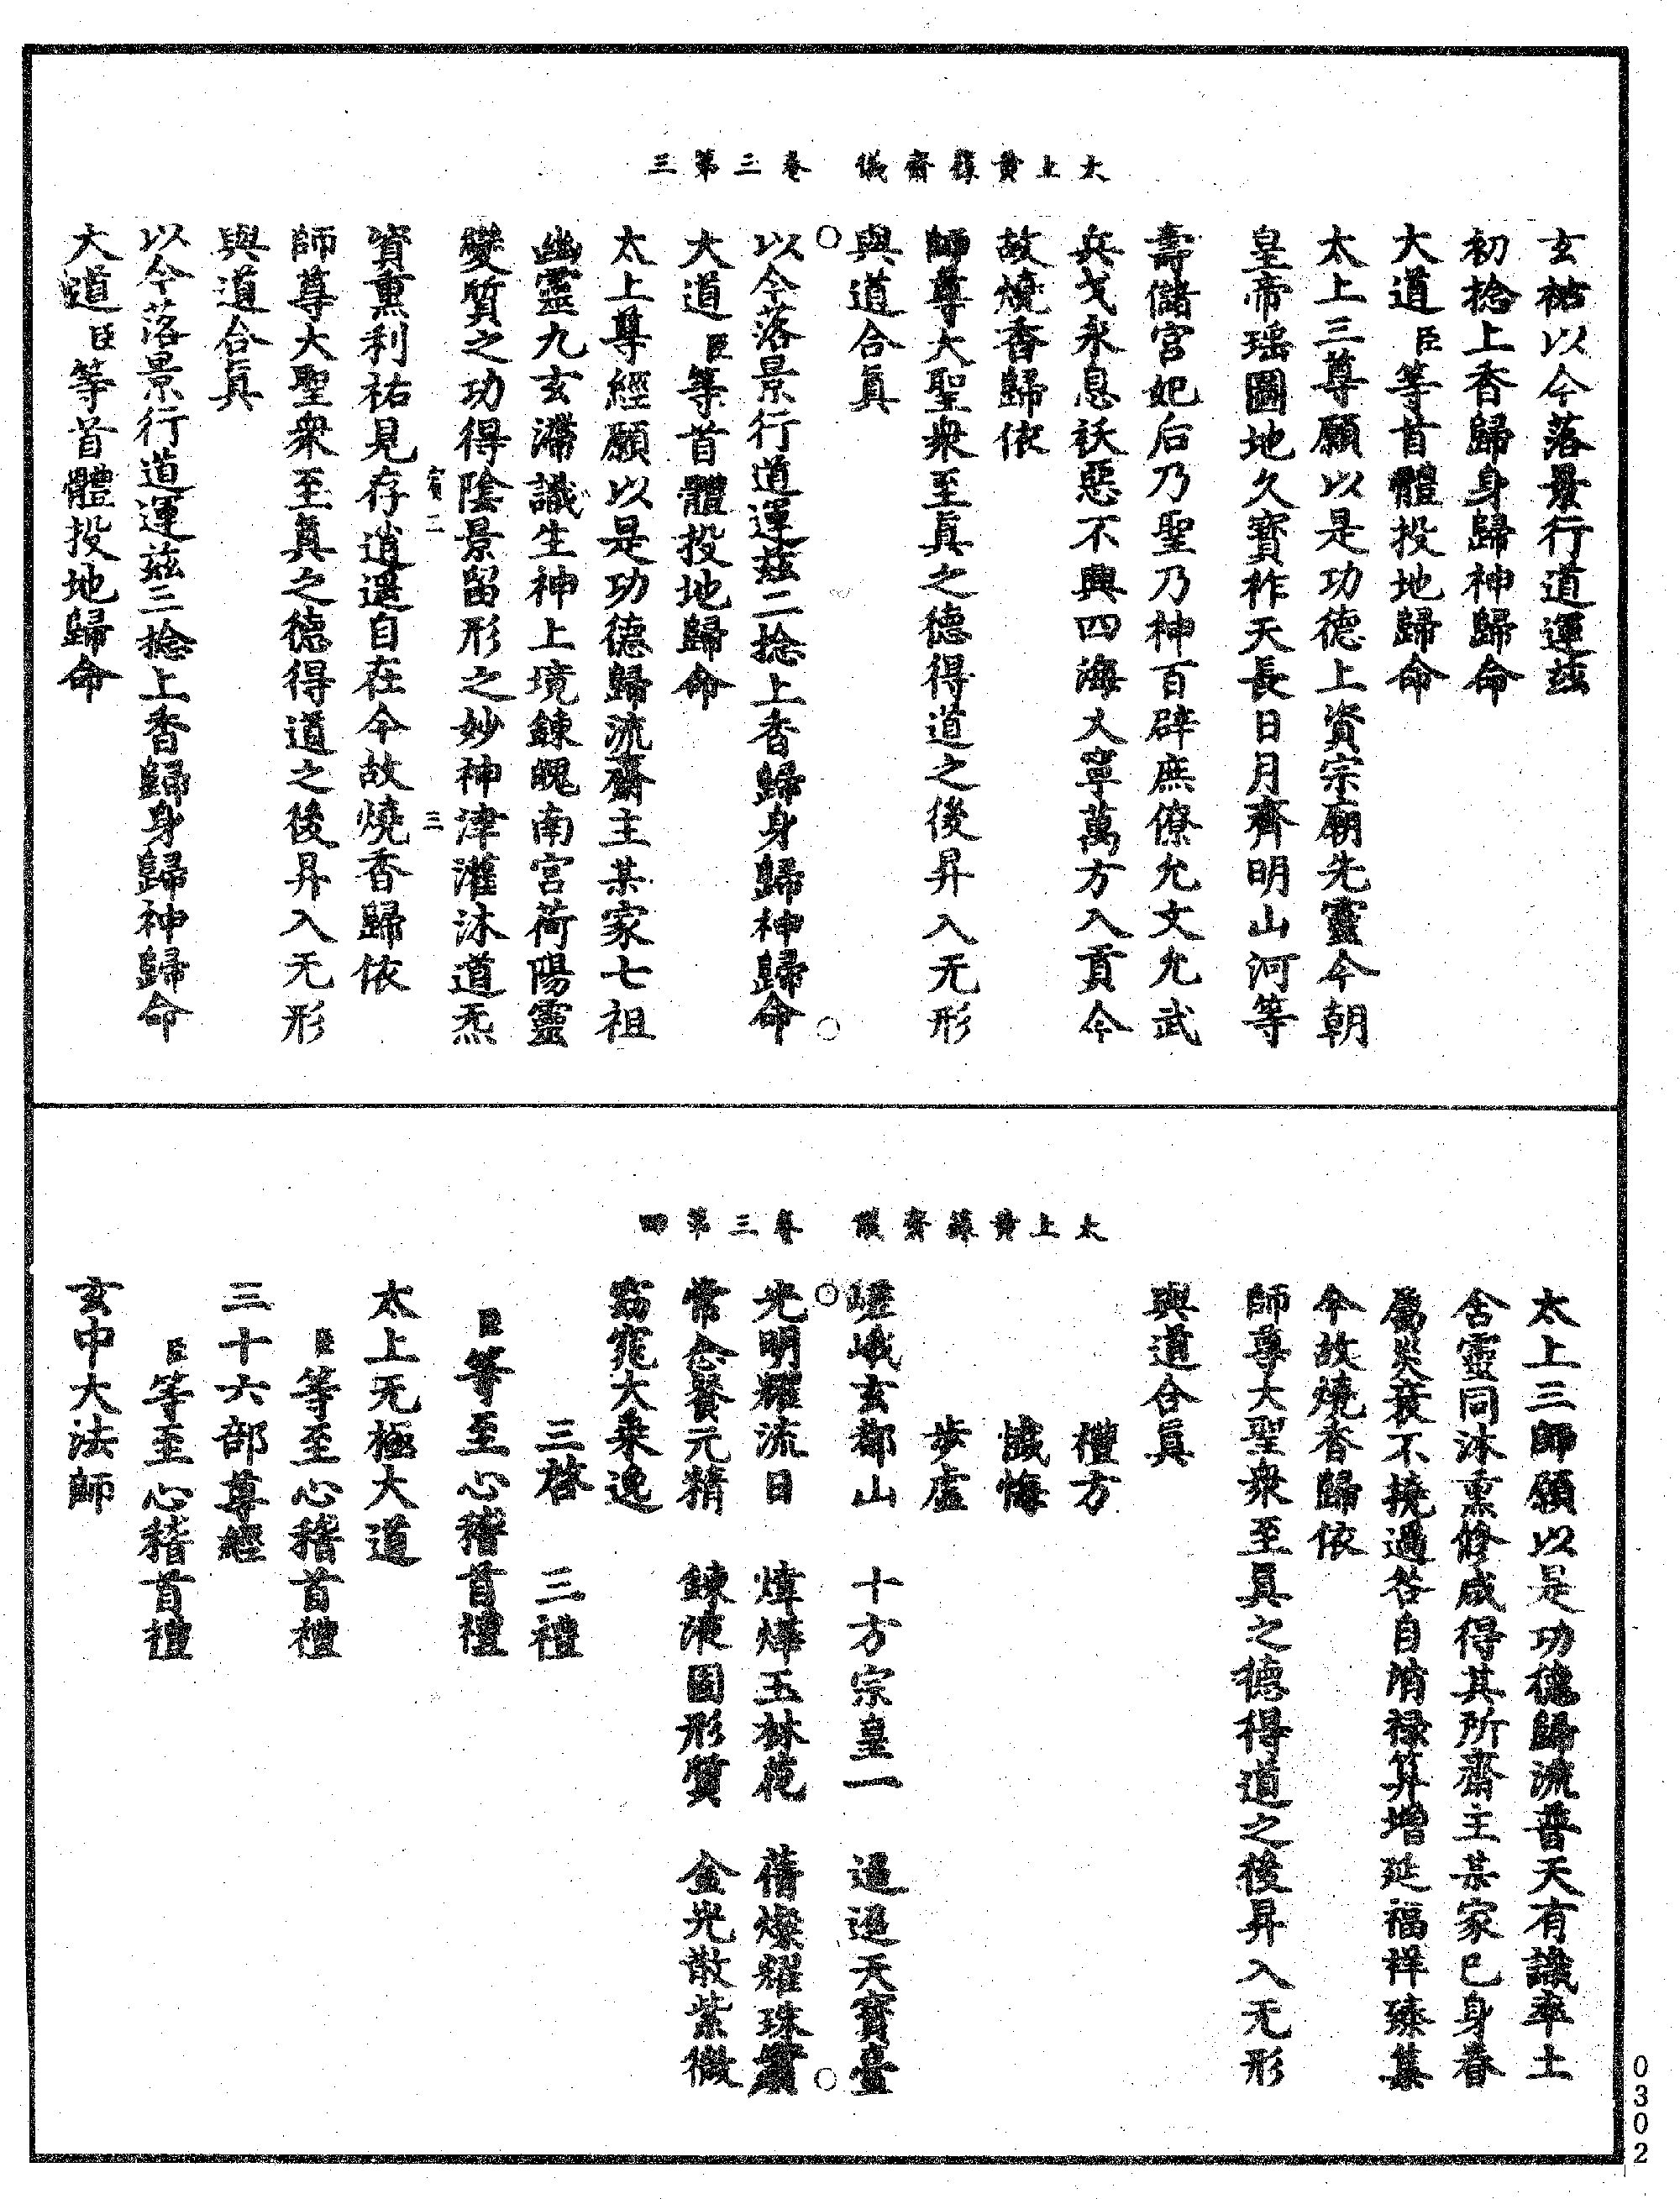 太上黃籙齋儀　卷三第三
玄祐以今落景行道運茲
初捻上香歸身歸神歸命
大道臣等首體投地歸命
太上三尊願以是功德上資宗廟先靈今朝
皇帝瑶圖地久寶祚天長日月齊明山河等
壽儲宮妃后乃聖乃神百辟庶僚允文允武
兵戈永息祅惡不興四海乂寧萬方入貢今
故燒香歸依
師尊大聖衆至眞之德得道之後昇入无形
與道合眞
以今落景行道運茲二捻上香歸身歸神歸命
大道臣等首體投地歸命
太上尊經願以是功德歸流齋主某家七祖
幽靈九玄滯識生神上境鍊魄南宮荷陽靈
變質之功得陰景留形之妙神津灌沐道炁
賓二　三
資熏利祐見存逍遥自在今故燒香歸依
師尊大聖衆至眞之德得道之後昇入无形
與道合眞
以今落景行道運茲三捻上香歸身歸神歸命
大道臣等首體投地歸命
太上黃籙齋儀　卷三第四
太上三師願以是功德歸流普天有識率土
含靈同沐熏修咸得其所齋主某家己身眷
屬災衰不撓過咎自消禄筭增延福祥臻集
今故燒香歸依
師尊大聖衆至眞之德得道之後昇入无形
與道合眞
禮方
懺悔
步虛
嵯峨玄都山　十方宗皇一　迢迢天寶臺
光明耀流日　煒燁玉林花　蒨燦耀珠實
常念餐元精　鍊液固形質　金光散紫微
窈窕大乘逸
三啓　三禮
臣等至心稽首禮
太上无極大道
臣等至心稽首禮
三十六部尊經
臣等至心稽首禮
玄中大法師
0302